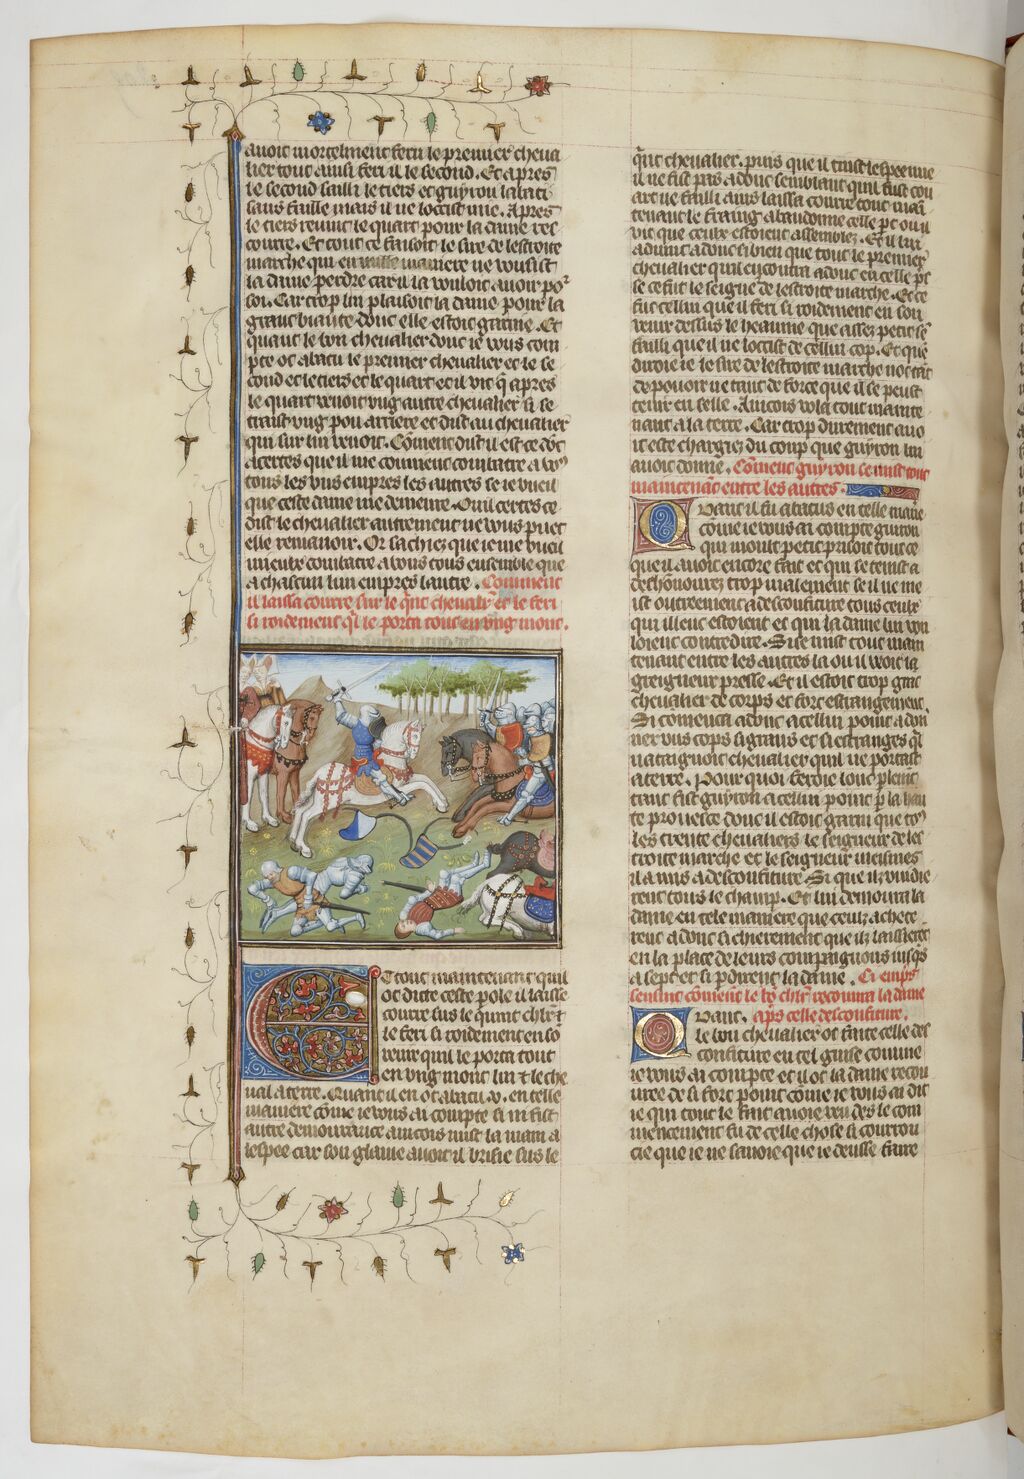 avoit mortelment feru le premier cheva
lier tout ainsi feri il le second. Et apres
le second sailli le tiers et guyron labati
sans faille mais il ne loccist mie. Apres
le tiers revint le quart pour la dame res
courre. Et tout ce faisoit le sire de lestroite
marche qui en nulle maniere ne vousist
la dame perdre car il la vouloit avoir po²
soi. Car trop lui plaisoit la dame pour la
grant biaute dont elle estoit garnie. Et
quant le bon chevalier dont ie vous com
pte ot abatu le premier chevalier et le se
cond et le tiers et le quart et il vit q apres
le quart venoit ung autre chevalier si se
traist ung pou arriere et dist au chevalier
qui sur lui venoit. Cōment dist il est ce dōc
acertes que il me convient combatre a voꝰ
tous les uns empres les autres se ie vueil
que ceste dame me demeure. Ouil certes ce
dist le chevalier autrement ne vous puet
elle remanoir. Or sachiez que ie me vueil
mieux combatre a vous tous ensemble que
a chascun lun empres lautre. Comment
il laissa courre sur le qⁱnt chevalr et le feri
si roidement ql le porta tout en ung mont.
Et tout maintenant quil
ot dicte ceste pole il laisse
courre sus le quint chlr et
le feri si roidement en so
venir quil le porta tout
en ung mont lui et le che
val a terre. Quant il en ot abatu .v. en telle
maniere cōme ie vous ai compte si ni fist
autre demourance aincois mist la main a
lespee car son glaive avoit il brisie sus le
qⁱnt chevalier. puis que il traist lespee nue
il ne fist pas adonc semblant quil fust cou
art ne failli ains laissa courre tout main
tenant le fraing abandonne celle pt ou il
vit que ceulx estoient assemblez. Et il lui
advint adonc si bien que tout le premier
chevalier quil encontra adonc en celle pt
se ce fut le seigne de lestroite marche. Et ce
fut cellui que il feri si roidement en son
venir dessus le heaume que assez petit sē
failli que il ne loccist de cellui cop. Et que
diroie ie le sire de lestroite marche not tāt
de pouoir ne tant de force que il se peust
tenir en selle. Aincois vola tout mainte
nant a la terre. Car trop durement avo
it este chargiez du coup que guyron lui
avoit donne. Cōment guyron se mist tout
maintenāt entre les autres.
Quant il fu abatus en telle maīe
cōme ie vous ai compte guirou
qui moult petit prisoit tout ce
que il avoit encore fait et qui se tenist a
deshonnourez trop malement se il ne me
ist oultreement a desconfiture tous ceulx
qui illeuc estoient et qui la dame lui vou
loient contredire. Si se mist tout main
tenant entre les autres la ou il voit la
greigneur presse. Et il estoit trop grāt
chevalier de corps et fort estrangement.
Si comenca adonc a cellui point a don
ner uns cops si grans et si estranges ql
nataignoit chevalier quil ne portast
a terre. Pour quoi feroie long plent
tant fist guyron a cellui point p la hau
te prouesce dont il estoit garni que toꝰ
les trente chevaliers le seigneur de les
troite marche et le seigneur meismes
il a mis a desconfiture. Si que il vuidie
rent tous le champ. Et lui demoura la
dame en tele maniere que ceulz achete
rent adonc si chierement que ilz laisserēt
en la place de leurs compaignons iusqs
a sept et si pdirent la dame. Ci empˢ
sensuit cōment le bō chlr recouvra la dame
aps celle desconfiture.
Quant
le bon chevalier ot faite celle des
confiture en tel guise comme
ie vous ai compte et il ot la dame recou
vree de si fort point cōme ie vous ai dit
ie qui tout le fait avoie veu des le com
mencement fu de celle chose si courrou
cie que ie ne savoie que ie deusse faire